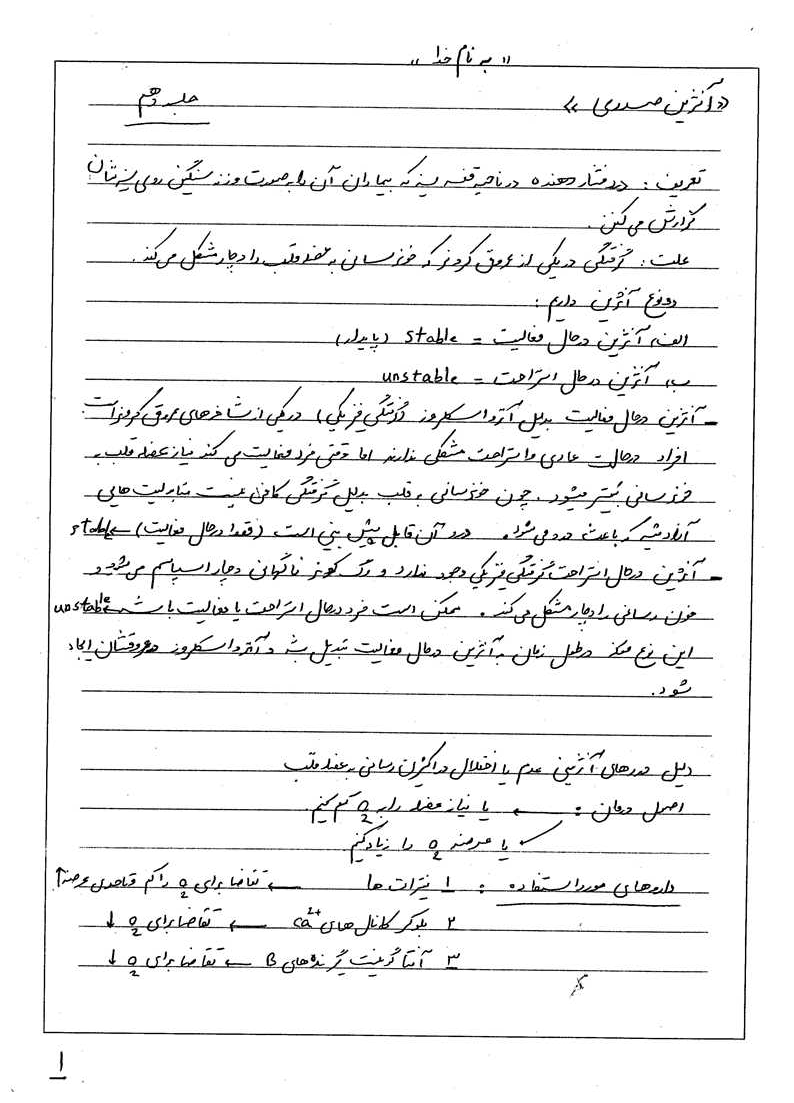 « به نام خدا »
« آنژین صدری »
جلسه دهم
تعریف : درد فشار دهنده در ناحیه قفسه سینه که بیماران آن را به صورت وزنه سنگین روی سینه شان
گزارش می کنند .
علت : گرفتگی در یکی از عروق کرونر که خونرسانی به عضله قلب را دچار مشکل می کند .
دو نوع آنژین داریم :
الف) آنژین در حال فعالیت = stable (پایدار)
ب) آنژین در حال استراحت = unstable
- آنژین در حال فعالیت بدلیل آترواسکلروز (گرفتگی فیزیکی) در یکی از شاخه های عروق کرونر است
افراد در حالت عادی و استراحت مشکلی ندارند اما وقتی فرد فعالیت می کند نیاز عضله قلب به
خونرسانی بیشتر میشود . چون خونرسانی به قلب بدلیل گرفتگی کافی نیست متابولیت هایی
آزاد میشه که باعث درد می شود . درد آن قابل پیش بینی است (فقط در حال فعالیت) ← stable
- آنژین در حال استراحت گرفتگی فیزیکی وجود ندارد و رگ کرونر ناگهانی دچار اسپاسم می شود و
خون رسانی را دچار مشکل می کند . ممکن است فرد در حال استراحت یا فعالیت باشد ← unstable
این نوع ممکنه در طول زمان به آنژین در حال فعالیت تبدیل بشه و آترواسکلروز در عروقشان ایجاد
شود .
دلیل دردهای آنژینی عدم یا اختلال در اکسیژن رسانی به عضله قلب
اصول درمان : ← یا نیاز عضله را به O2 کم کنیم .
← یا عرضه O2 را زیاد کنیم
داروهای مورد استفاده : 1 نیترات ها ← تقاضا برای O2 را کم و تاحدی عرضه ↑
2 بلوکر کانال های Ca2+ ← تقاضا برای O2 ↓
3 آنتاگونیست گیرنده های B ← تقاضا برای O2 ↓
1